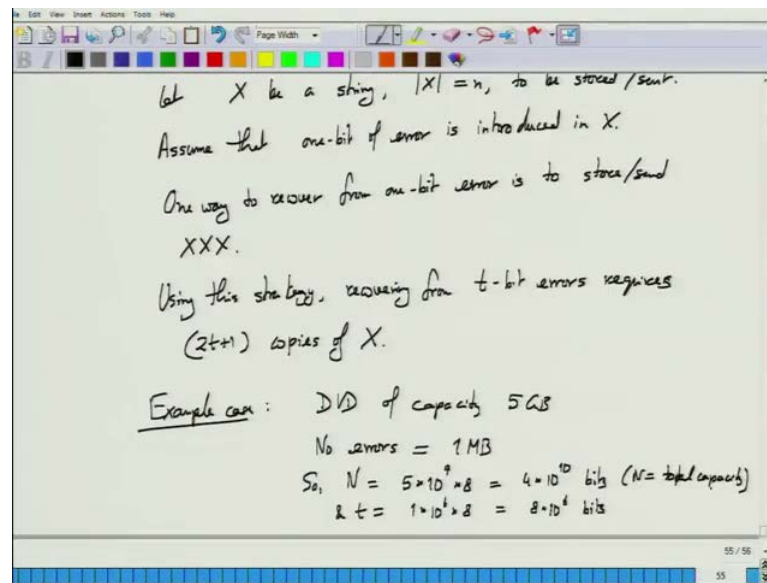 Edit View Insert Actions Tools Help
Page Width
B I
Let X be a string, |X| = n, to be stored/sent.
Assume that one-bit of error is introduced in X.
One way to recover from one-bit error is to store/send
XXX.
Using this strategy, recovering from t-bit errors requires
(2t+1) copies of X.
Example case : DVD of capacity 5 GB
No errors = 1 MB
So, N = 5*10^9*8 = 4*10^10 bits (N = total capacity)
& t = 1*10^6*8 = 8*10^6 bits
55 / 56
55